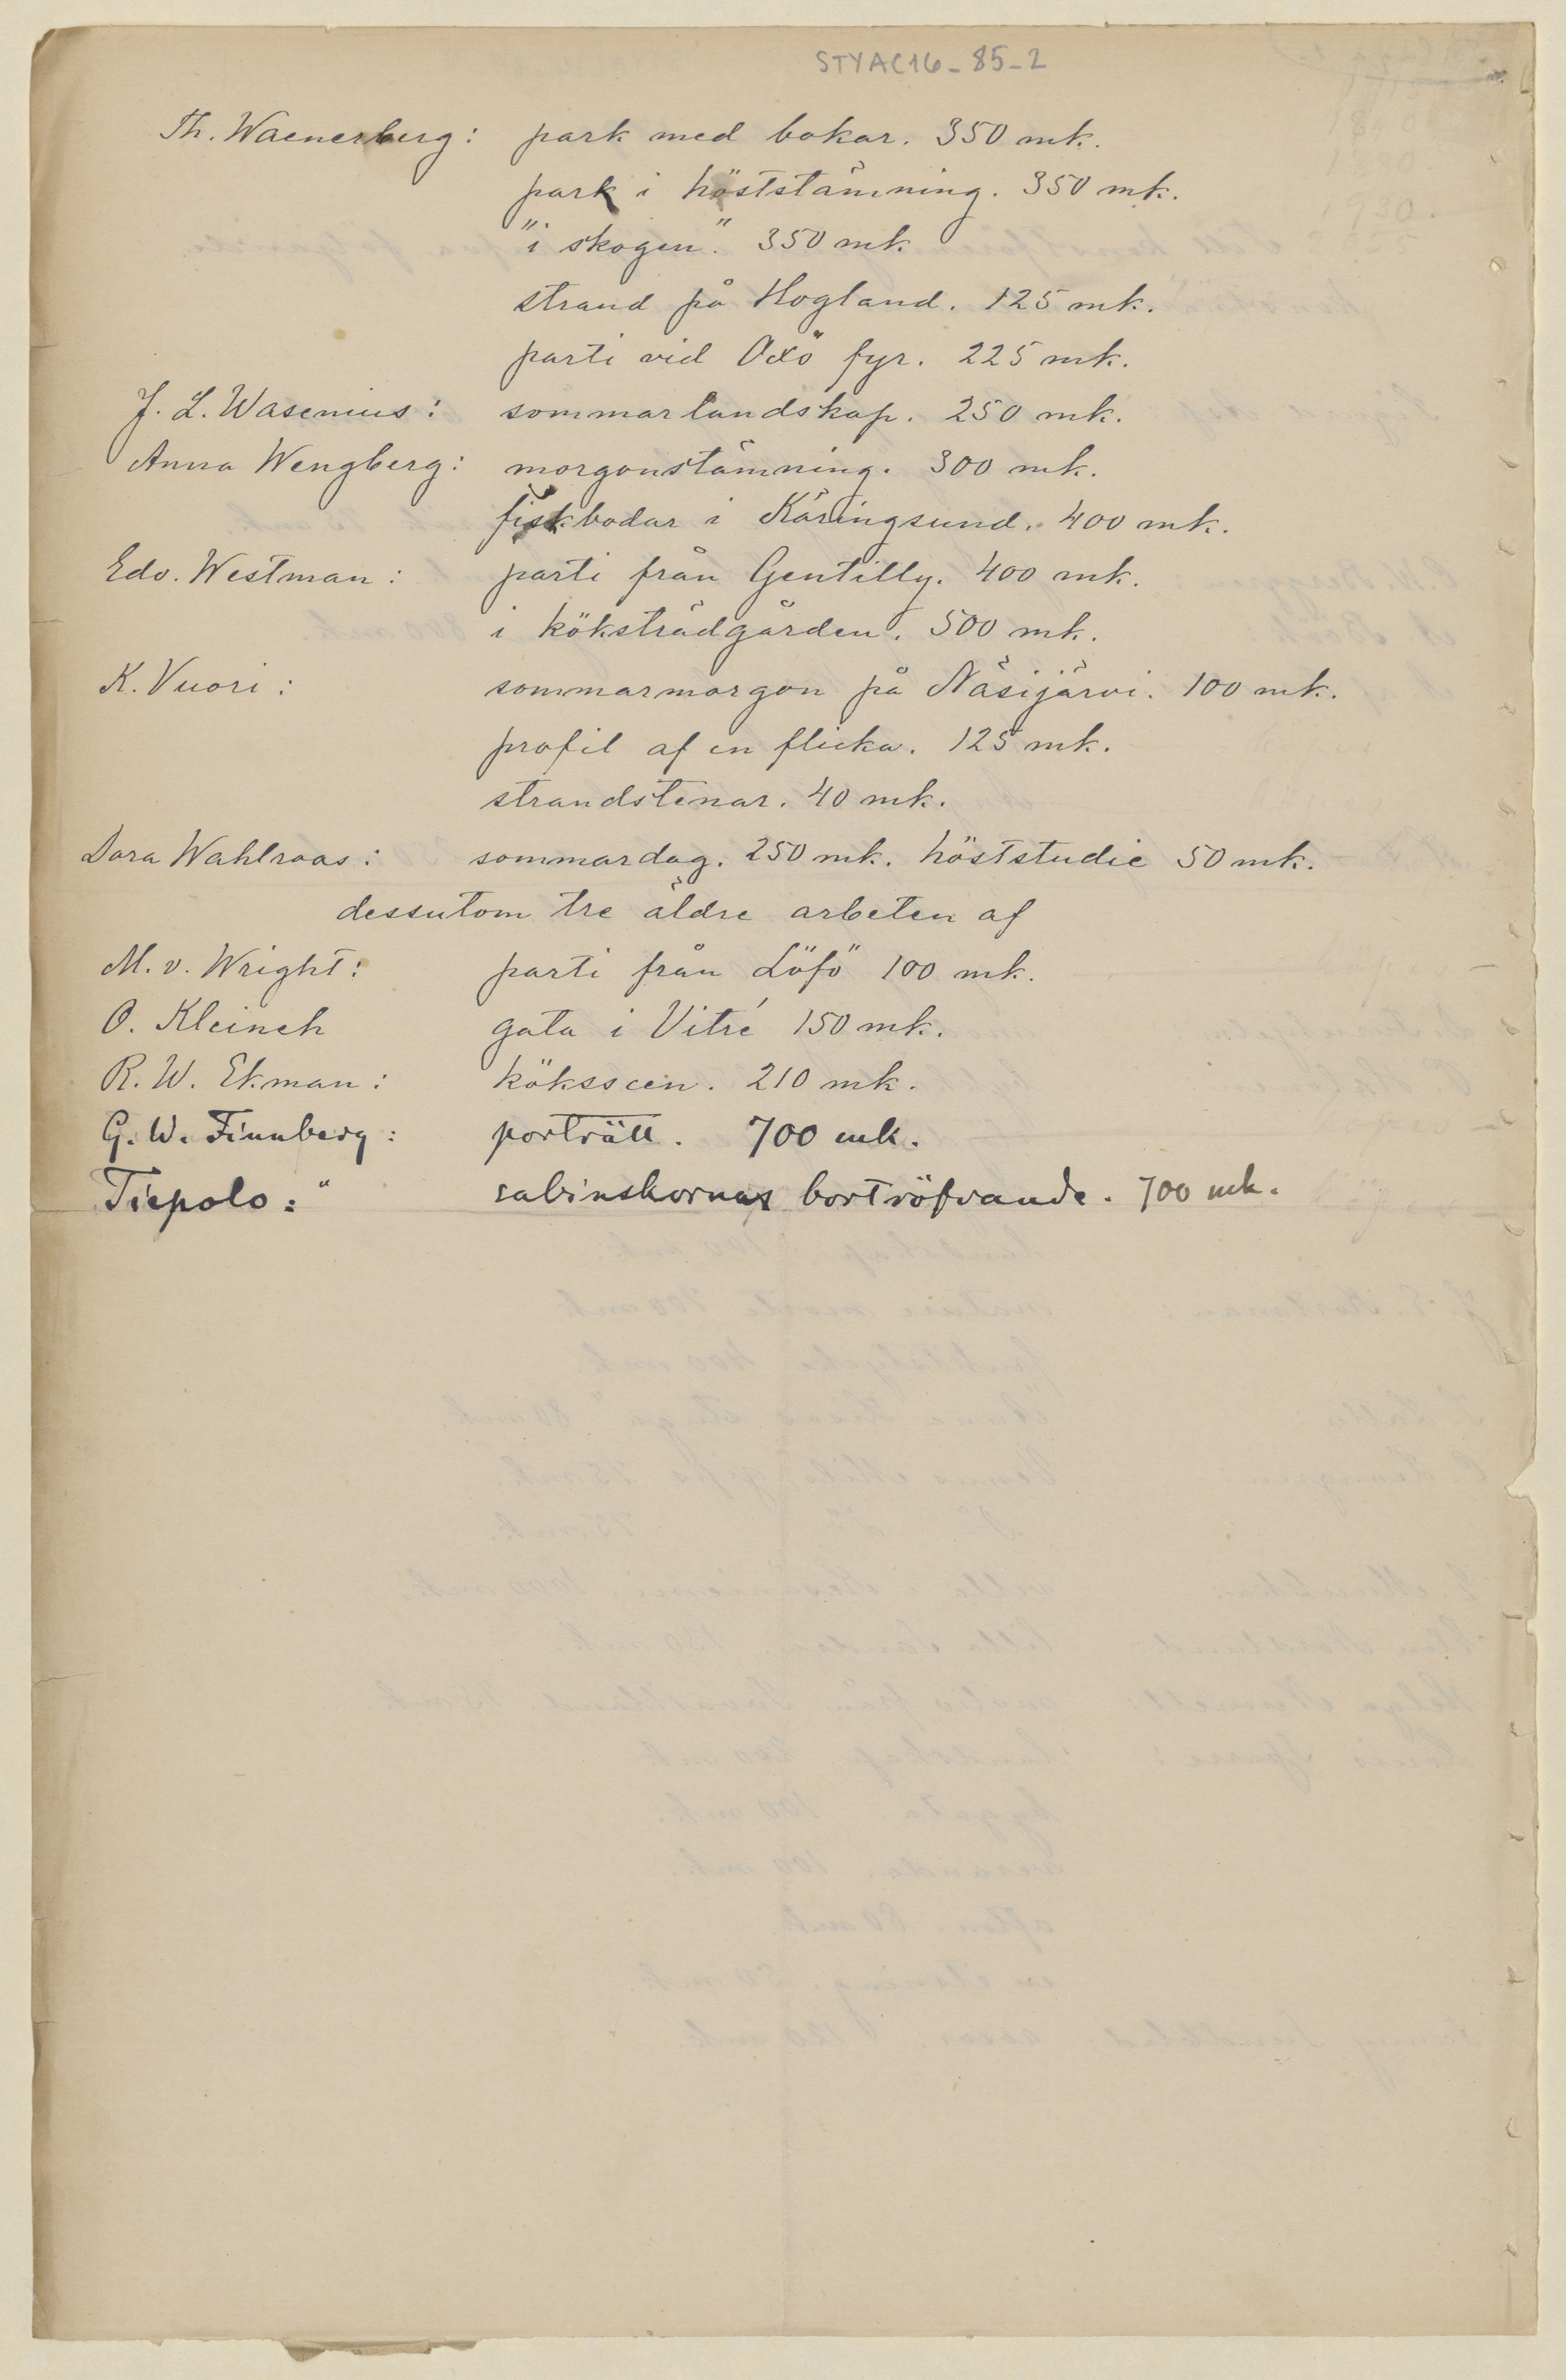 STYAC16-85-2
Th. Waenerberg: park med bokar. 350 mk.
park i höststämning. 350 mk.
"i skogen". 350 mk
strand på Hogland. 125 mk.
parti vid Oxö fyr. 225 mk.
J. L. Wasenius: sommarlandskap. 250 mk.
Anna Wengberg: morgonstämning. 300 mk.
fiskbodar i Käringsund. 400 mk.
Edv. Westman: parti från Gentilly. 400 mk.
i köksträdgården. 500 mk.
K. Vuori: sommarmorgon på Näsijärvi. 100 mk.
profil af en flicka. 125 mk.
strandstenar. 40 mk.
Dora Wahlroos: sommardag. 250 mk. höststudie 50 mk.
dessutom tre äldre arbeten af
M. v. Wright: parti från Löfö 100 mk.
O. Kleineh gata i Vitré 150 mk.
R. W. Ekman: köksscen. 210 mk.
G. W. Finnberg: porträtt. 700 mk.
Tiepolo:" sabinskornas bortröfvande. 700 mk.